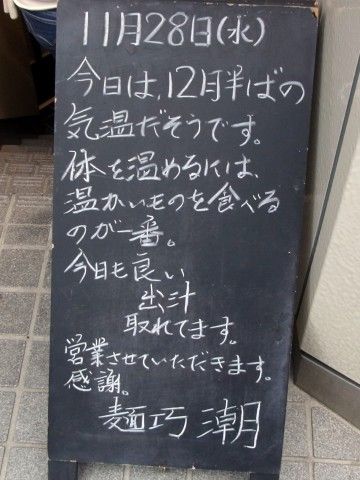 11月28日(水)
今日は、12月半ばの
気温だそうです。
体を温めるには、
温かいものを食べる
のが一番。
今日も良い
出汁
取れてます。
営業させていただきます。
感謝。
麺巧 潮